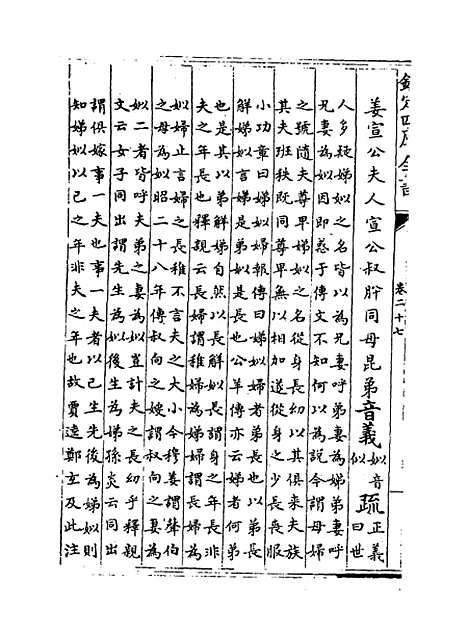 欽定四庫全書
卷二十七
姜宣公夫人宣公叔肸同母昆弟音義姒音似疏正義曰世
人多疑娣姒之名皆以為兄妻呼弟妻為娣弟妻呼
兄妻為姒因即惑于傳文不知何以為説今謂母婦
之號隨夫尊卑娣姒之名從身長幼以其俱來夫族
其夫班秩既同尊卑無以相加遂從身之少長喪服
小功章曰娣姒婦報傳曰娣姒婦者弟長也以弟長
解娣姒言娣是弟姒是長也公羊傳亦云娣者何弟
也是其以弟解娣自然以長解姒長謂身之年長非
夫之年長也釋親云長婦謂稚婦為娣婦謂長婦為
姒婦止言婦之長稚不言夫之大小今穆姜謂聲伯
之母為姒昭二十八年傳叔向之嫂謂叔向之妻為
姒二者皆呼夫弟之妻為姒豈計夫之長幼乎釋親
文云女子同出謂先生為姒後生為娣孫炎云同出
謂俱嫁事一夫也事一夫者以己生先後為娣姒則
知娣姒以己之年非夫之年也故賈逵鄭玄及此注